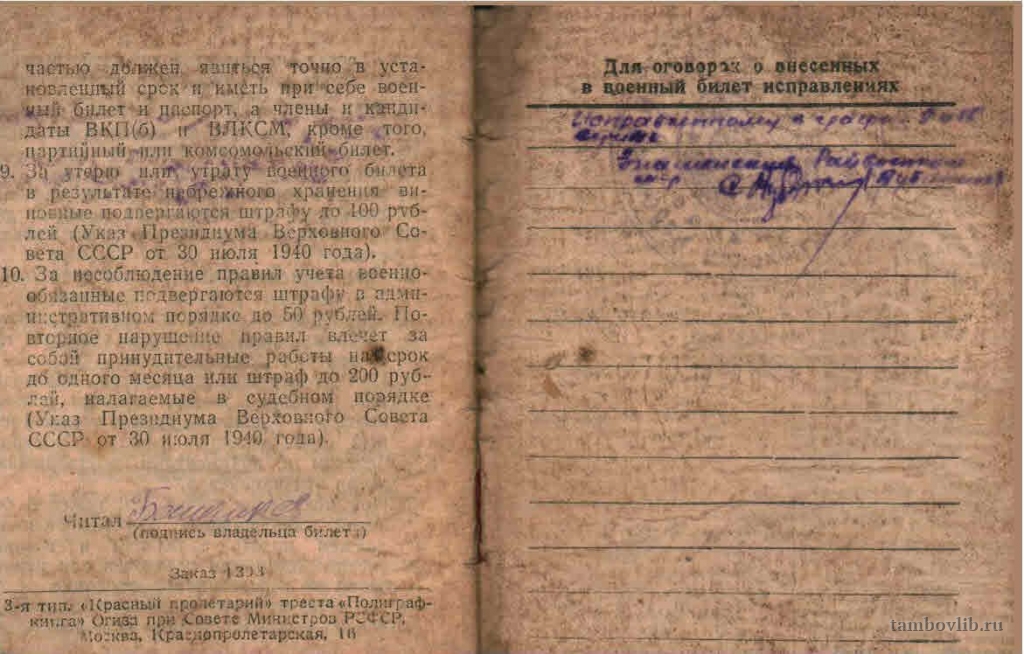 частью должен явиться точно в уста-
новленный срок и иметь при себе воен-
ный билет и паспорт, а члены и канди-
даты ВКП(б) и ВЛКСМ, кроме того,
партийный или комсомольский билет.
9. За утерю или утрату военного билета
в результате небрежного хранения ви-
новные подвергаются штрафу до 100 руб-
лей (Указ Президиума Верховного Со-
вета СССР от 30 июля 1940 года).
10. За несоблюдение правил учета военно-
обязанные подвергаются штрафу в адми-
нистративном порядке до 50 рублей. По-
вторное нарушение правил влечет за
собой принудительные работы на срок
до одного месяца или штраф до 200 руб-
лей, налагаемые в судебном порядке
(Указ Президиума Верховного Совета
СССР от 30 июля 1940 года).
Читал
(подпись владельца билета)
Заказ
3-я тип. «Красный пролетарий» треста «Полиграф-
книга» Огиза при Совете Министров РСФСР.
Москва, Краснопролетарская, 16
Для оговорок о внесенных
в военный билет исправлениях
Исправленному в графе
верить
tambovlib.ru